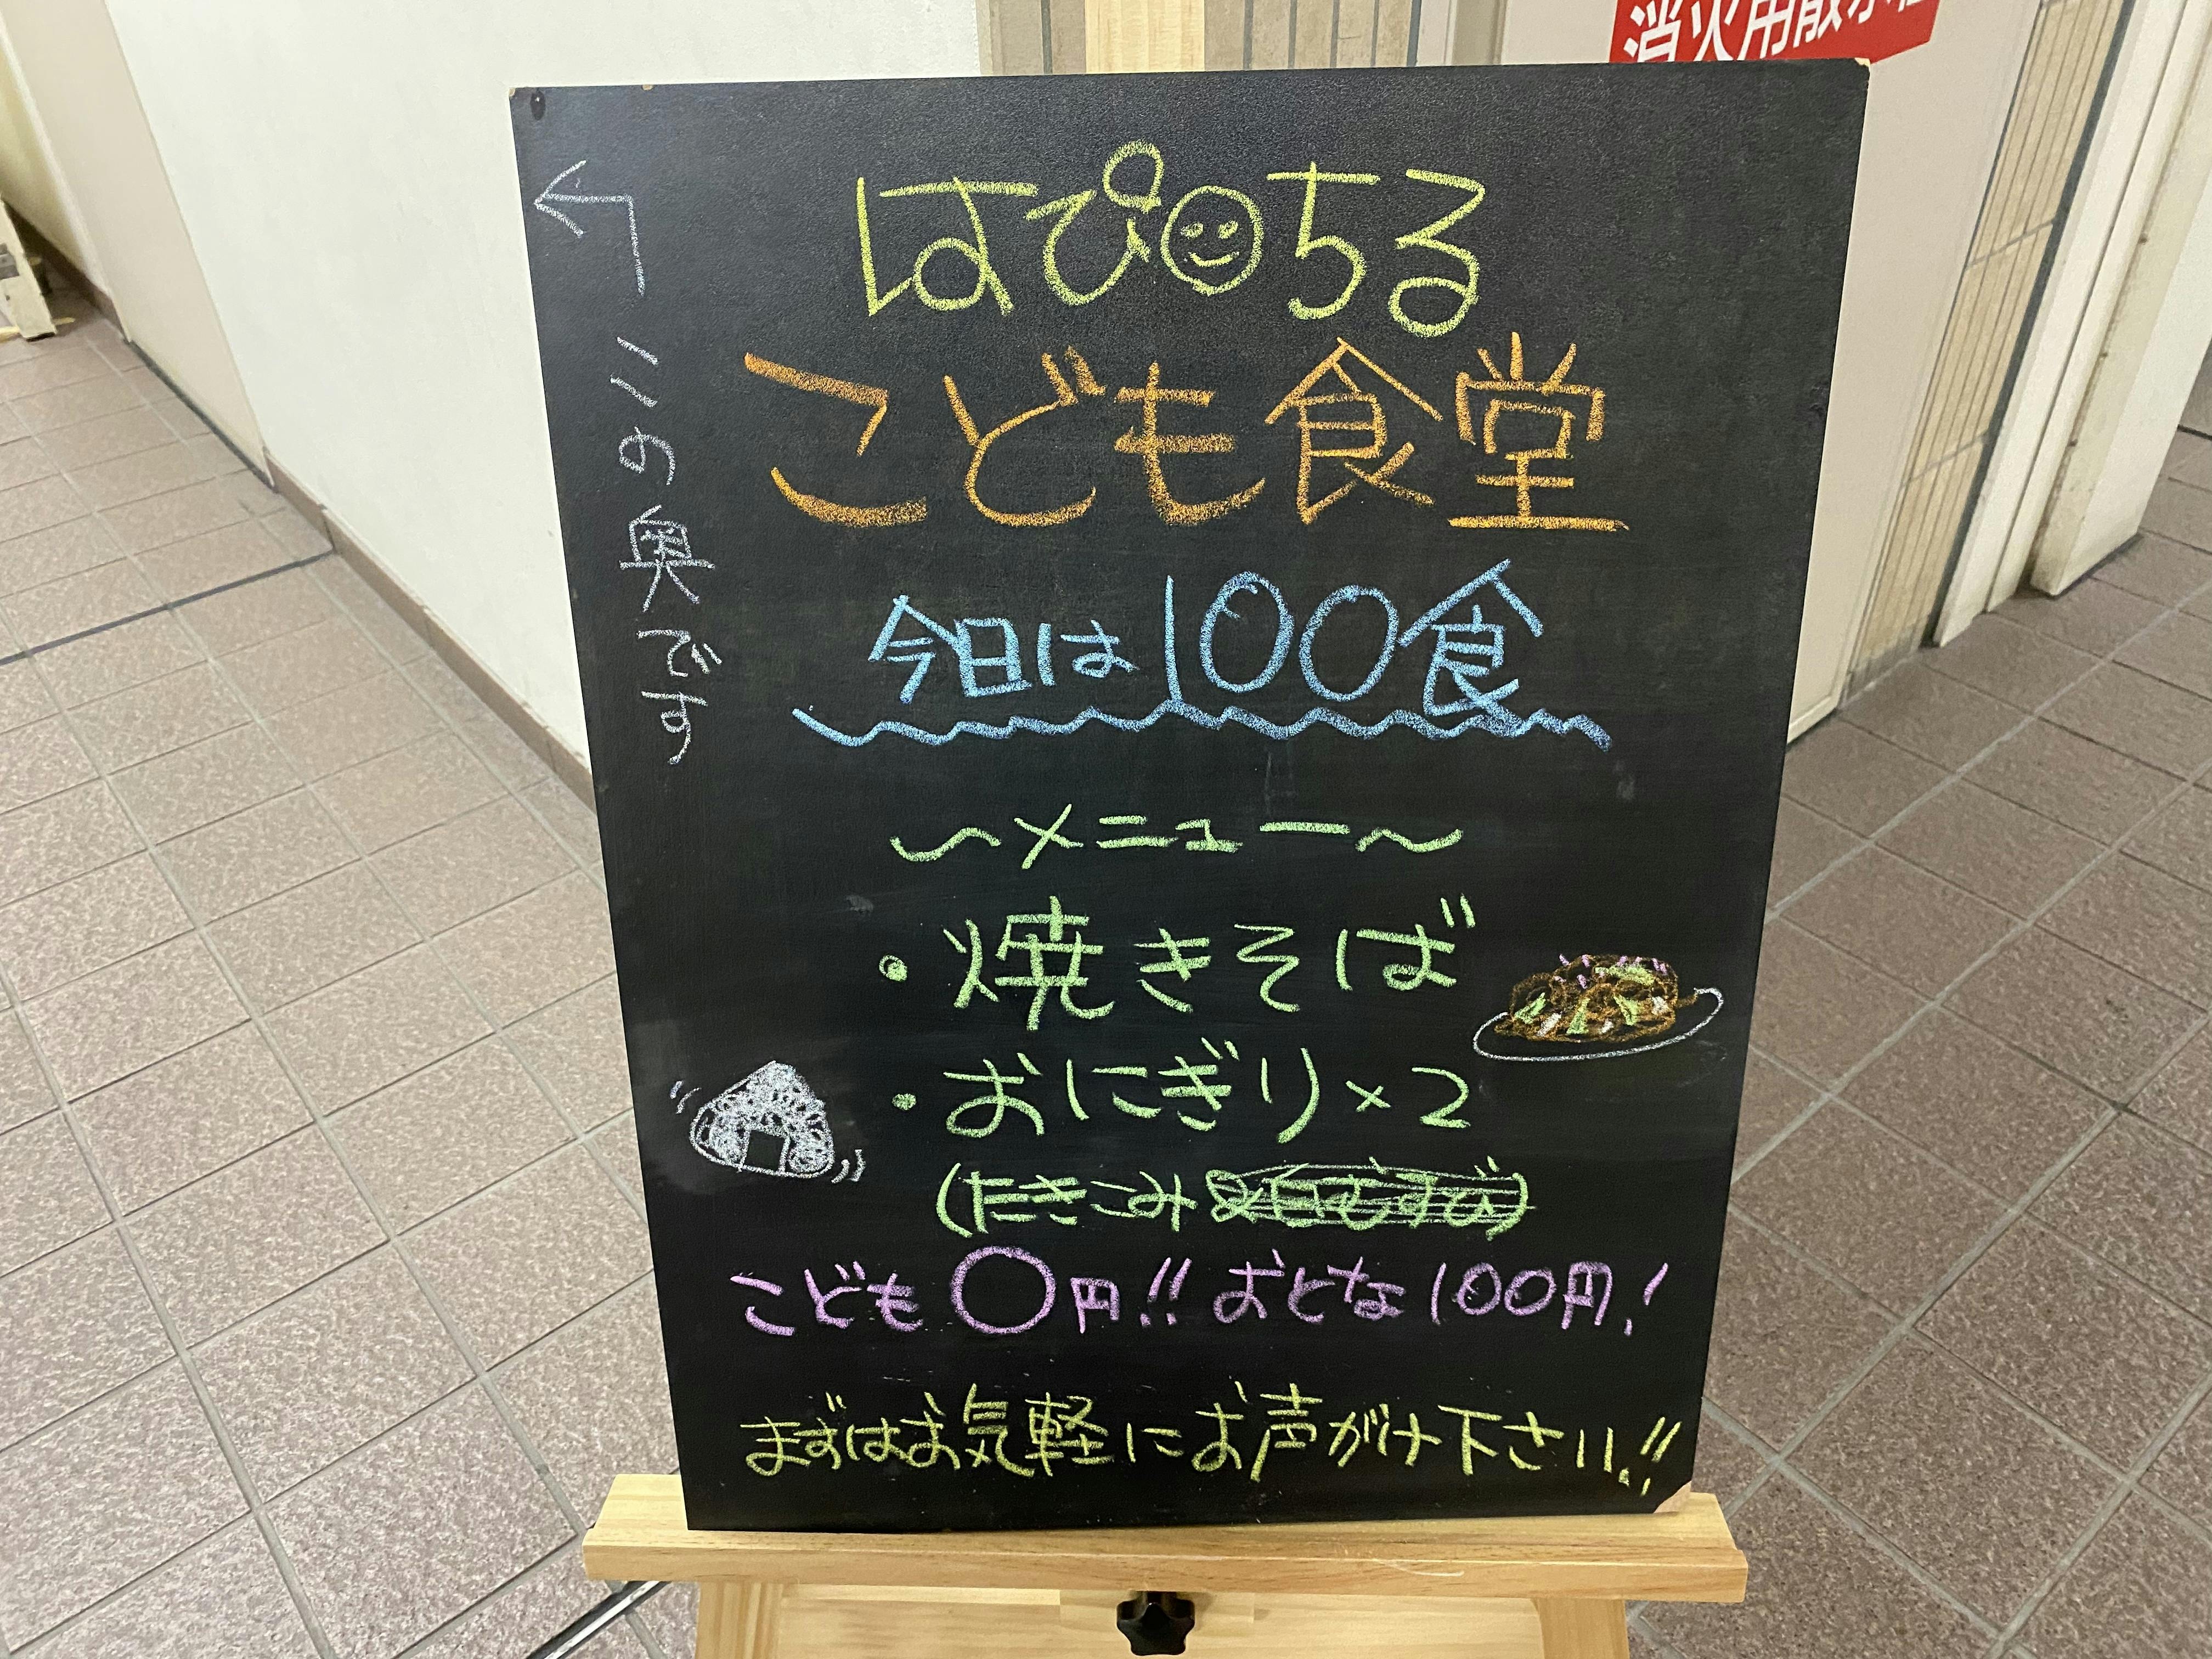 消火用散水栓
はぴ☺ちる
こども食堂
今日は100食
←この奥です
～メニュー～
・焼きそば
・おにぎり×2
(たきこみ
こども〇円!! おとな100円!
まずはお気軽にお声がけ下さい!!